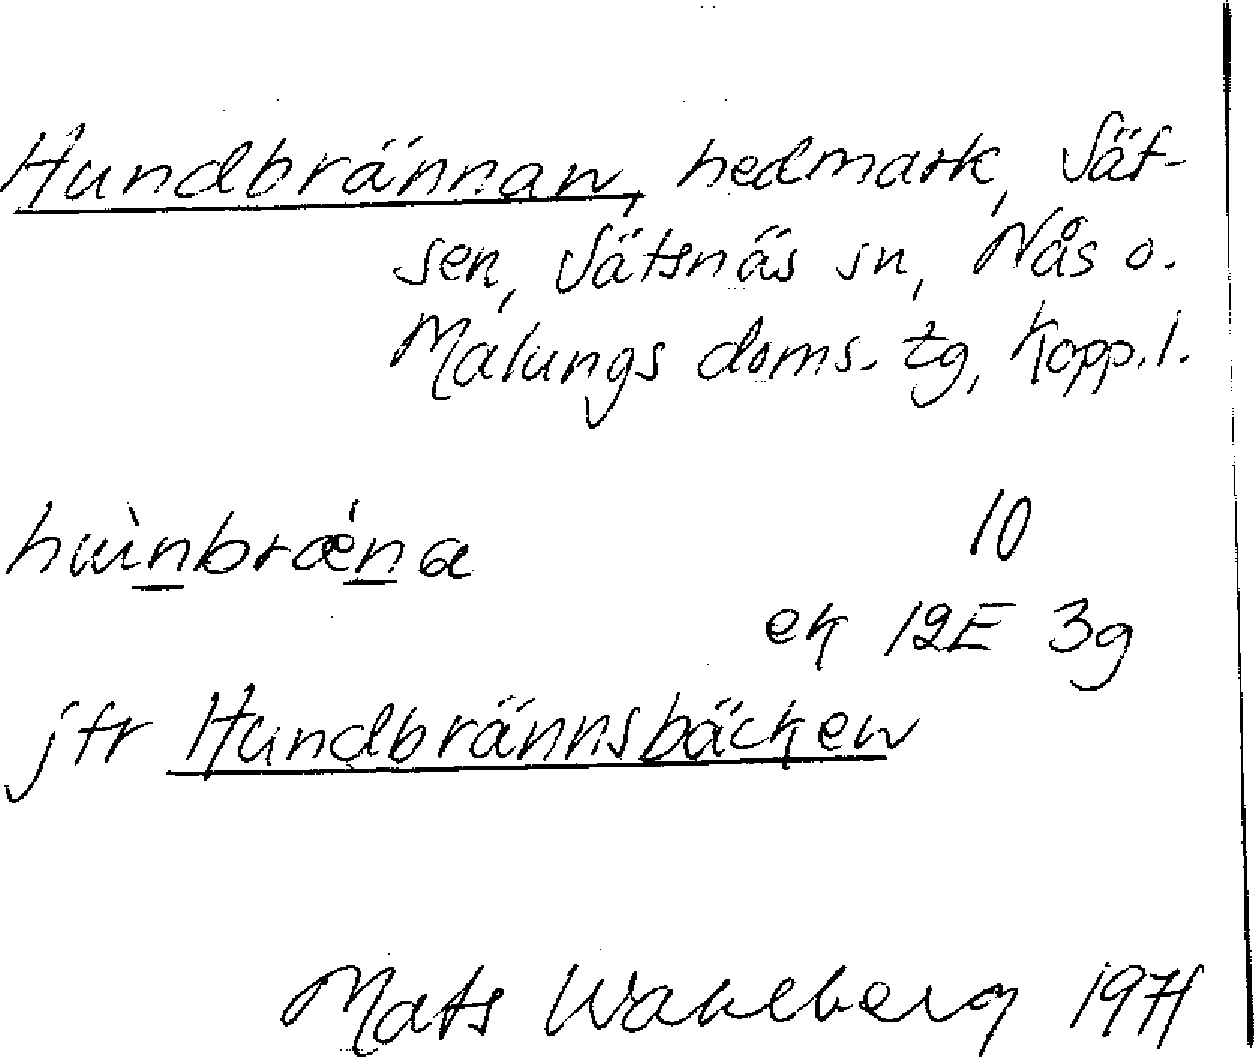 Hundbrännan, hedmark, Sät-
sen, Sätsnäs sn, Nås o.
Malungs doms. tg, Kopp.l.
hɯ̀nbrǽna 10
ek 12E 3g
jfr Hundbrännsbäcken
Mats Wahlberg 1971